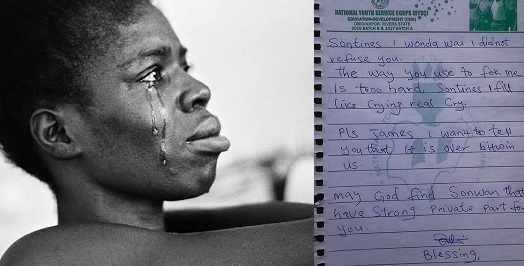 NATIONAL YOUTH SERVICE CORPS (NYSC)
EDUCATION-DEVELOPMENT (CDS)
OBIO/AKPOR, RIVERS STATE
2016 BATCH B & 2017 BATCH A
Somtines I wonda wai I didnot
refuse you.
The way you use to fok me
Is tooo hard. Somtines I fill
like crying real cry.
Pls James I want to tell
you that it is over bitwin
us.
may God find Sonwan that
have strong private part for
you.
Blessing.